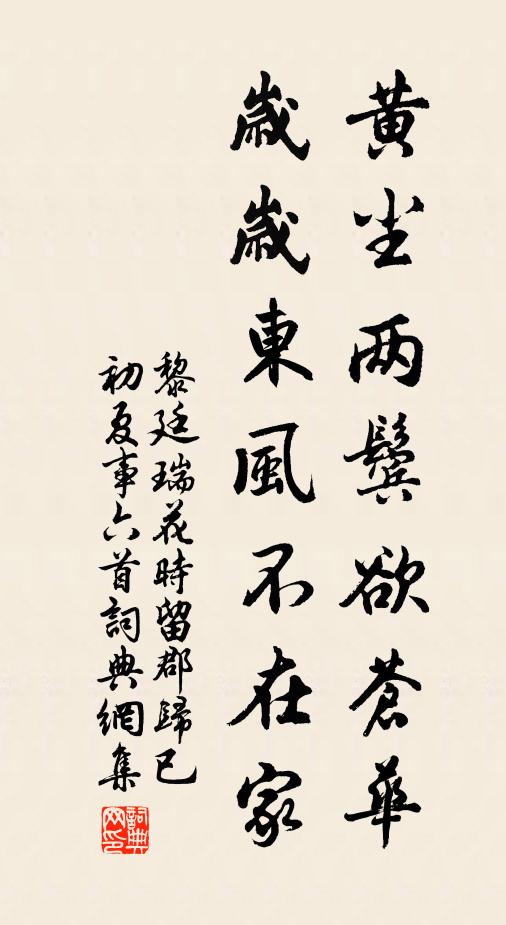 黄尘两鬓欲苍華
歲歲東風不在家
黎廷瑞花時留郡歸已
初夏事六首詞典網集
詞典网印